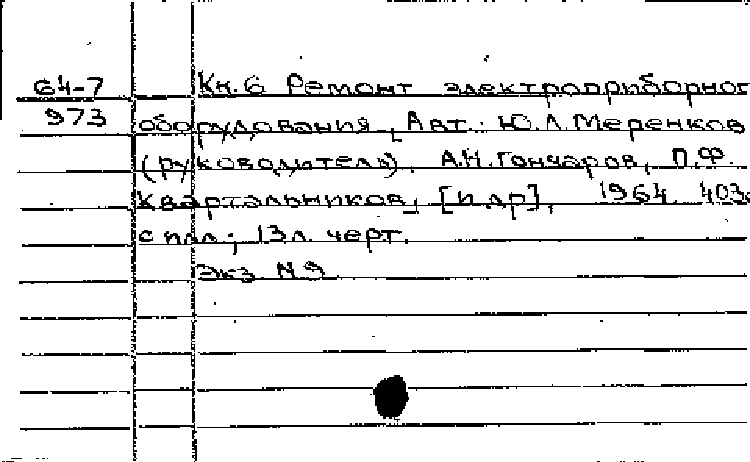 64-7 Кн.6 Ремонт электроприборног
973 оборудования, [Авт.: Ю.Л.Меренков
(руководитель), А.Н.Гончаров, П.Ф.
Квартальников, [и др], 1964. 403с
с илл.; 13л. черт.
Экз N9